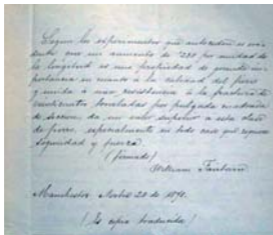 Segun los esperimentos que anteceden es evi-
dente que un aumento de '220 por unidad de
la lonjitud es una propiedad de grande im-
portancia en cuanto a la calidad del fierro
y unida á una resistencia á la fractura de
veinticuatro toneladas por pulgada cuadrada
de seccion, da un valor superior a esta clase
de fierro, especialmente en todo caso que requiera
seguridad y fuerza.
(Firmado)
William Fairbairn
Manchester 20 de 1870.
(Es copia traducida)